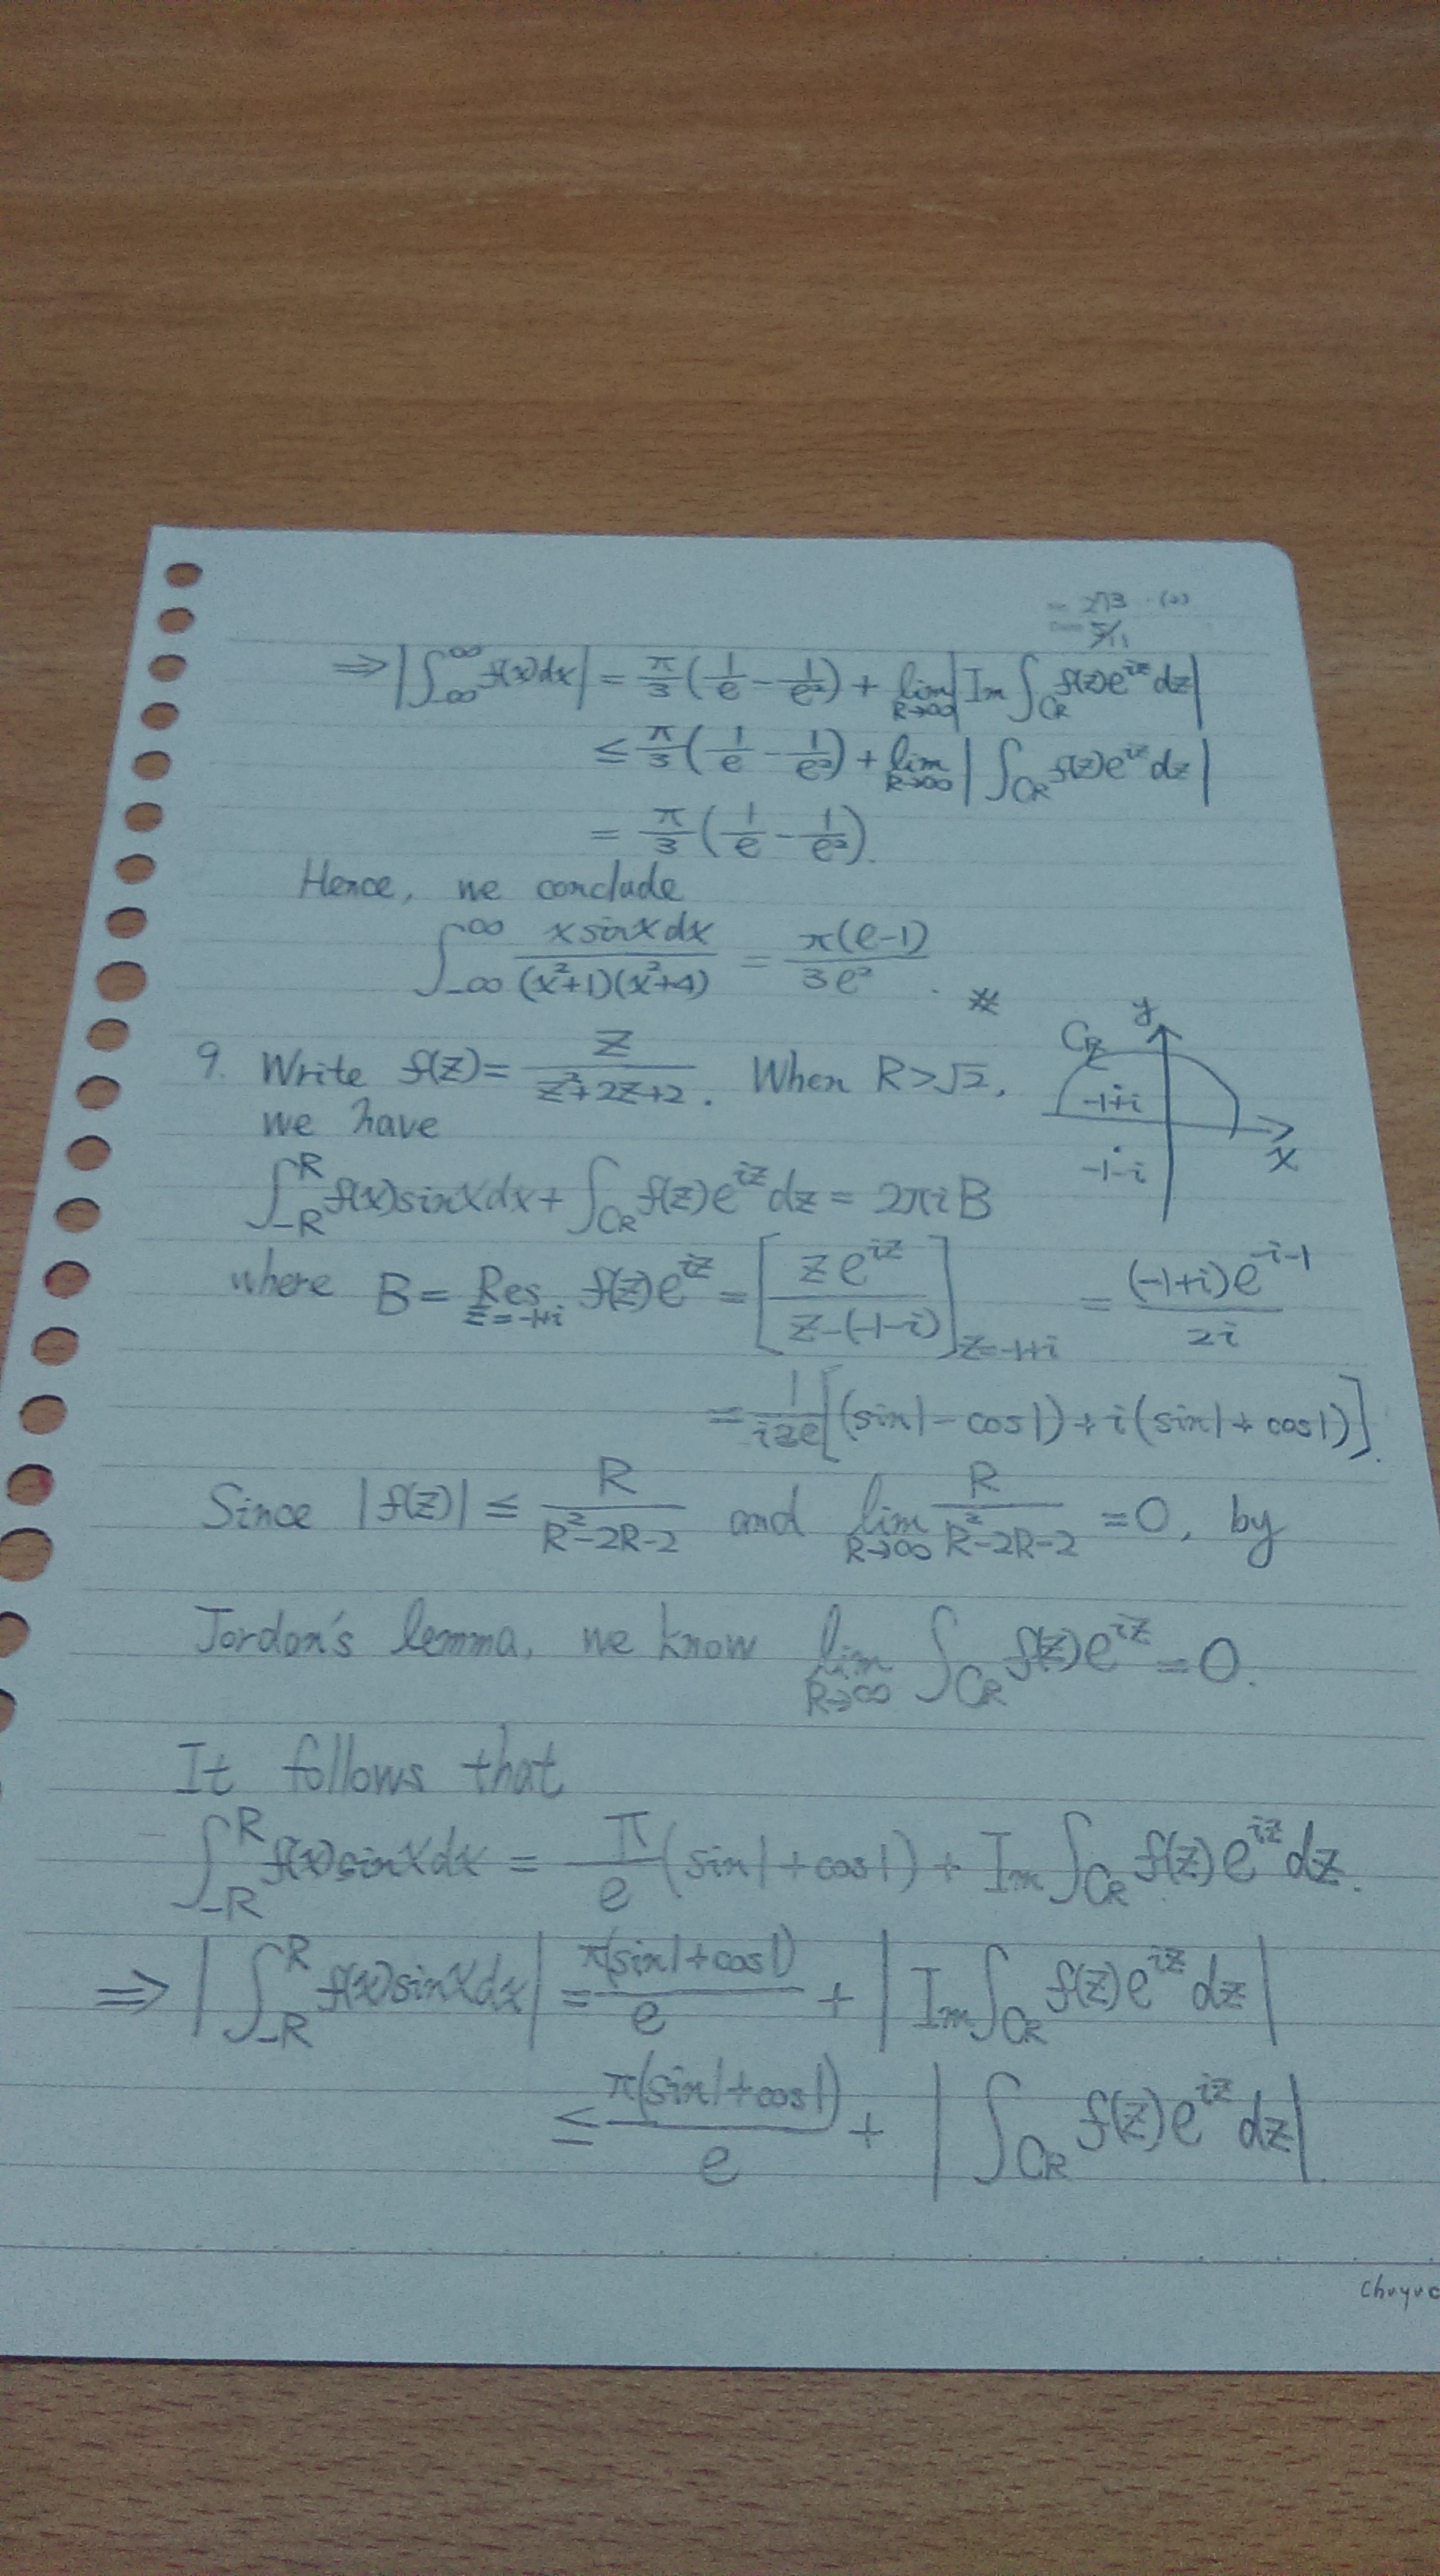 = 273 (2)
5/11
⇒ |∫_{-∞}^{∞} f(x)dx| = π/3 (1/e - 1/e²) + lim_{R→∞} |Im ∫_{C_R} f(z)e^{iz} dz|
≤ π/3 (1/e - 1/e²) + lim_{R→∞} | ∫_{C_R} f(z)e^{iz} dz|
= π/3 (1/e - 1/e²).
Hence, we conclude
∫_{-∞}^{∞} x sinx dx / (x²+1)(x²+4) = π(e-1) / 3e² . #
y
C_R
-1+i
x
-1-i
9. Write f(z) = z / z²+2z+2 . When R>√2,
we have
∫_{-R}^{R} f(x)sinx dx + ∫_{C_R} f(z)e^{iz} dz = 2πi B
where B = Res_{z=-1+i} f(z)e^{iz} = [ z e^{iz} / z-(-1-i) ]_{z=-1+i} = (-1+i)e^{-i-1} / 2i
= 1/i2e [(sin1 - cos1) + i(sin1 + cos1)].
Since |f(z)| ≤ R / R²-2R-2 and lim_{R→∞} R / R²-2R-2 = 0, by
Jordan's lemma, we know lim_{R→∞} ∫_{C_R} f(z)e^{iz} = 0.
It follows that
∫_{-R}^{R} f(x)sinx dx = π/e (sin1 + cos1) + Im ∫_{C_R} f(z)e^{iz} dz.
⇒ | ∫_{-R}^{R} f(x)sinx dx | = π(sin1+cos1) / e + | Im ∫_{C_R} f(z)e^{iz} dz |
≤ π(sin1+cos1) / e + | ∫_{C_R} f(z)e^{iz} dz|.